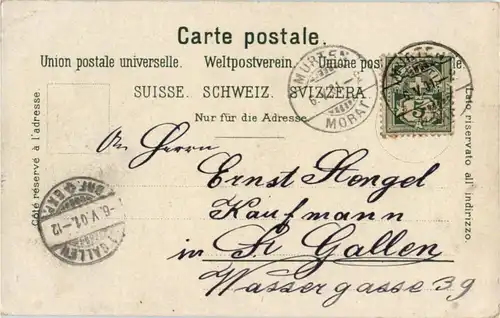 Carte postale.
Union postale universelle. Weltpostverein. Unione postale
SUISSE. SCHWEIZ. SVIZZERA.
Nur für die Adresse
Côté réservé à l'adresse.
Lato riservato all' indirizzo.
MURTEN
MORAT
MURTEN
5
An Herrn
Ernst Stengel
Kaufmann
in St Gallen
Wassergasse 39
ST. GALLEN
-6.V.01.-12
BRF. EXP.